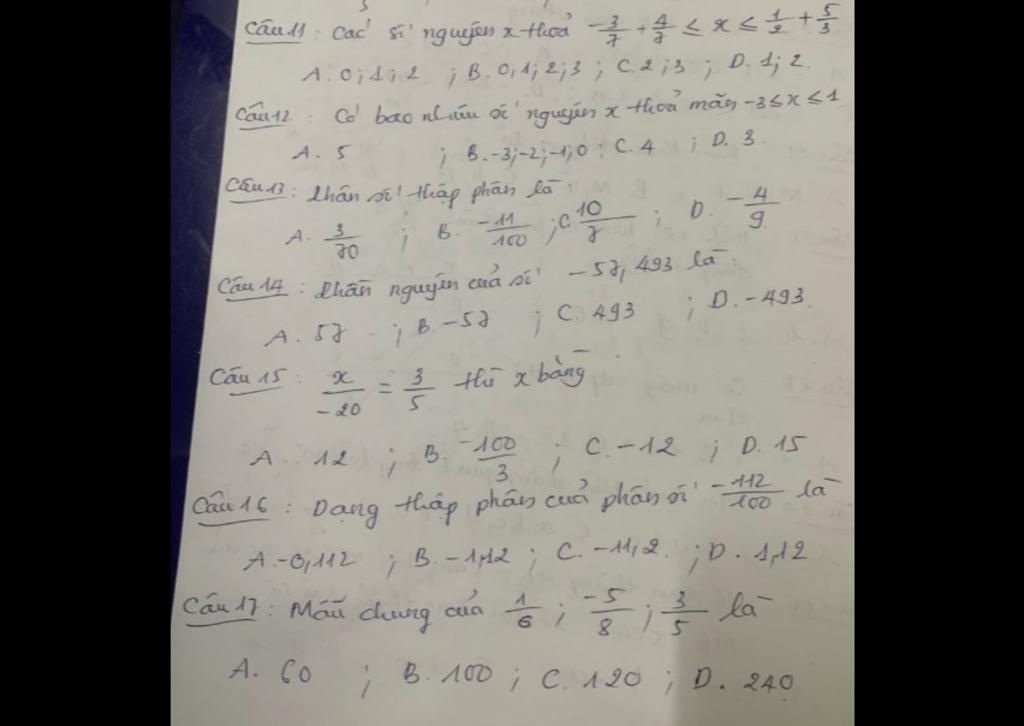 Câu 11 : Các số nguyên x thoả -3/7 + 4/7 ≤ x ≤ 1/2 + 5/3
A. 0; 1; 2 ; B. 0, 1; 2; 3 ; C. 2; 3 ; D. 1; 2.
Câu 12 : Có bao nhiêu số nguyên x thoả mãn -3 ≤ x ≤ 1
A. 5 ; B. -3; -2; -1; 0 ; C. 4 ; D. 3
Câu 13 : Phân số thập phân là :
A. 3/70 ; B. -11/100 ; C. 10/7 ; D. -4/9
Câu 14 : Phần nguyên của số -57,493 là :
A. 57 ; B. -57 ; C. 493 ; D. -493.
Câu 15 : x/-20 = 3/5 thì x bằng
A. 12 ; B. -100/3 ; C. -12 ; D. 15
Câu 16 : Dạng thập phân của phân số -112/100 là
A. -0,112 ; B. -1,12 ; C. -11,2. ; D. 1,12
Câu 17 : Mẫu chung của 1/6 ; -5/8 ; 3/5 là
A. 60 ; B. 100 ; C. 120 ; D. 240